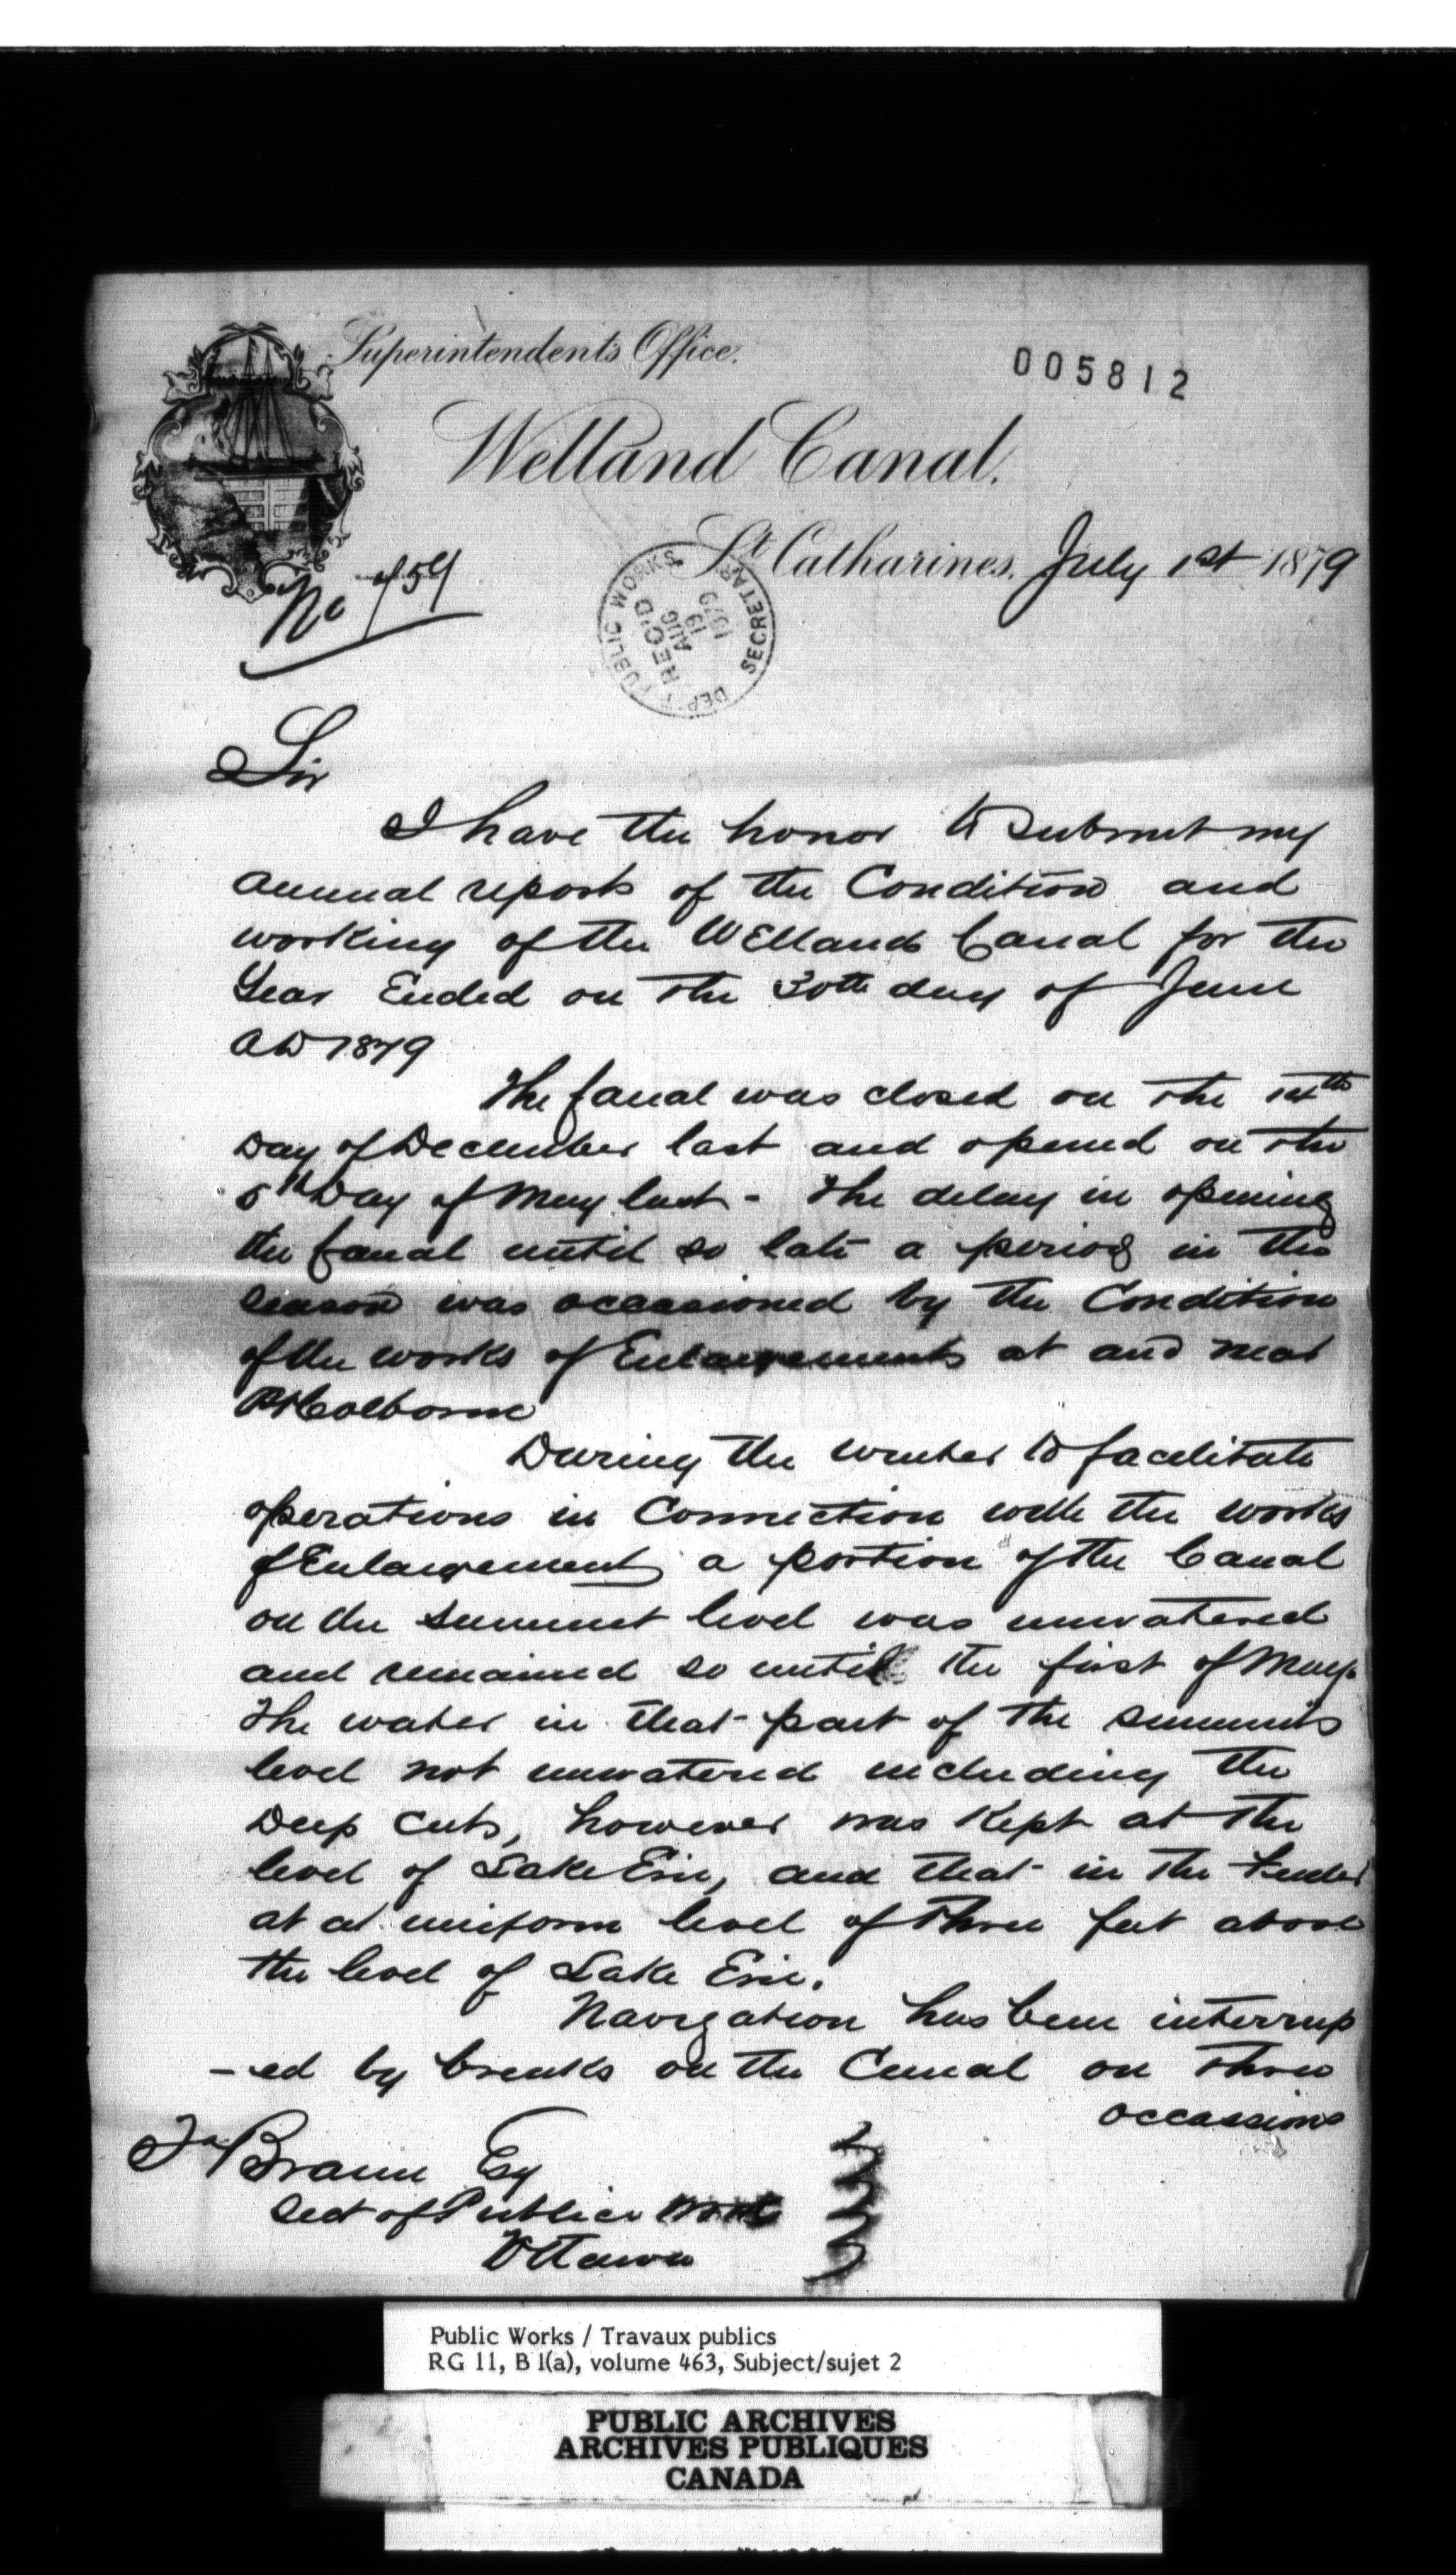 Superintendent's Office.
005812
Welland Canal.
St. Catharines, July 1st 1879
No
DEP'T PUBLIC WORKS
SECRETARY
REC'D
AUG
19
1879
Sir
I have the honor to submit my
annual reports of the Condition and
working of the Welland Canal for the
Year Ended on the 30th day of June
AD 1879
The Canal was closed on the
Day of December last and opened on the
5th Day of May last - The delay in opening
the Canal until so late a period in the
season was occassioned by the Condition
of the works of Enlargements at and near
Pt Colborne
During the winter to facilitate
operations in Connection with the works
of Enlargement a portion of the Canal
on the summit level was unwatered
and remained so until the first of May.
The water in that part of the summit
level not unwatered including the
Deep Cuts, however was Kept at the
level of Lake Erie, and that in the feeder
at a uniform level of three feet above
the level of Lake Erie.
Navigation has been interrup
-ed by breaks on the Canal on three
occassions
Braun Esq
Sect of Public Works
Ottawa
Public Works / Travaux publics
RG 11, B 1(a), volume 463, Subject/sujet 2
PUBLIC ARCHIVES
ARCHIVES PUBLIQUES
CANADA